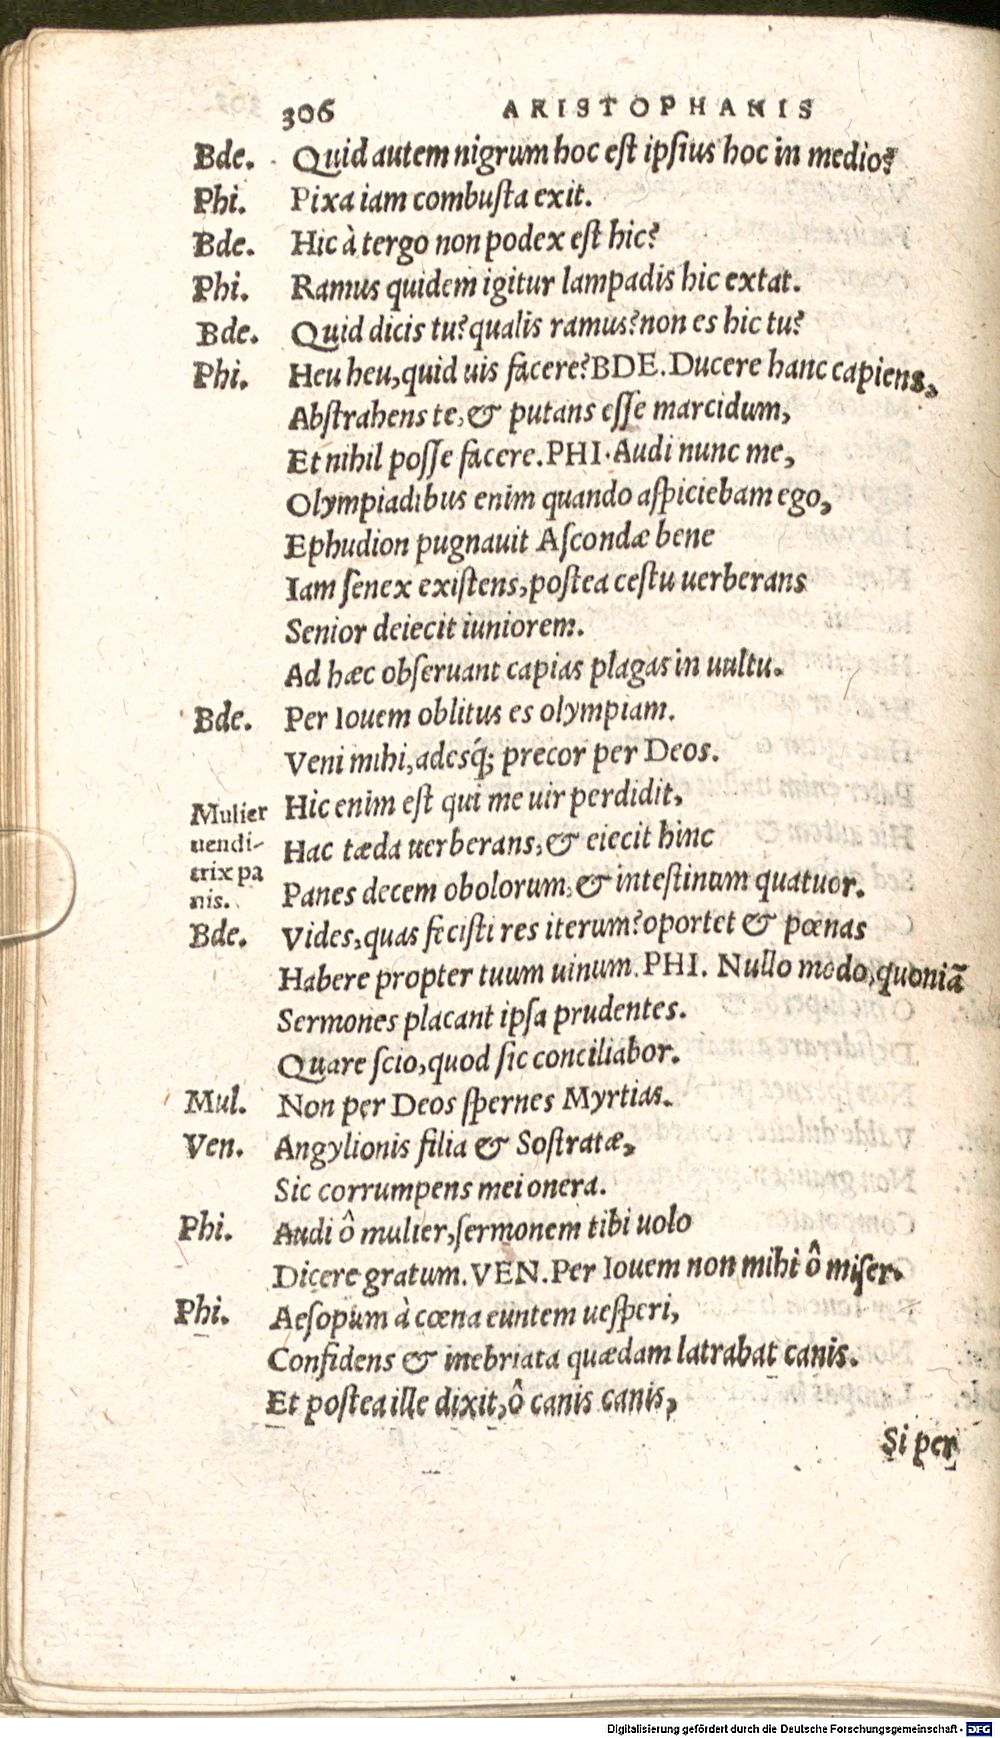 306 ARISTOPHANIS
Bde. Quid autem nigrum hoc est ipsius hoc in medio?
Phi. Pixa iam combusta exit.
Bde. Hic à tergo non podex est hic?
Phi. Ramus quidem igitur lampadis hic extat.
Bde. Quid dicis tu? qualis ramus? non es hic tu?
Phi. Heu heu, quid uis facere? BDE. Ducere hanc capiens,
Abstrahens te, & putans esse marcidum,
Et nihil posse facere. PHI. Audi nunc me,
Olympiadibus enim quando aspiciebam ego,
Ephudion pugnauit Ascondæ bene
Iam senex existens, postea cestu uerberans
Senior deiecit iuniorem.
Ad hæc obseruant capias plagas in uultu.
Bde. Per Iouem oblitus es olympiam.
Veni mihi, adesq́; precor per Deos.
Mulier uendi-trix pa nis. Hic enim est qui me uir perdidit,
Hac tæda uerberans, & eiecit hinc
Panes decem obolorum, & intestinum quatuor.
Bde. Vides, quas fecisti res iterum? oportet & pœnas
Habere propter tuum uinum. PHI. Nullo modo, quoniã
Sermones placant ipsa prudentes.
Quare scio, quod sic conciliabor.
Mul. Non per Deos spernes Myrtias.
Ven. Angylionis filia & Sostratæ,
Sic corrumpens mei onera.
Phi. Audi ô mulier, sermonem tibi uolo
Dicere gratum. VEN. Per Iouem non mihi ô miser.
Phi. Aesopum à cœna euntem uesperi,
Confidens & inebriata quædam latrabat canis.
Et postea ille dixit, ô canis canis,
Si per
Digitalisierung gefördert durch die Deutsche Forschungsgemeinschaft - DFG